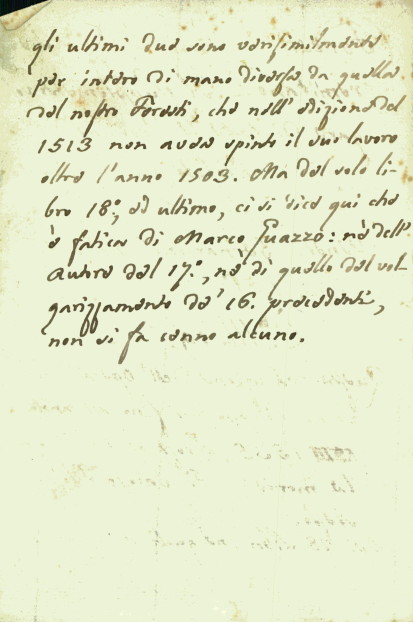 gli ultimi due sono verisimilmente
per intero di mano diversa da quella
del nostro Foresti, che nell' edizione del
1513 non avea spinto il suo lavoro
oltre l'anno 1503. Ma del solo li-
bro 18.°, ed ultimo, ci si dice qui che
è fatica di Marco Guazzo: nè dell'
Autore del 17.°, nè di quello del vol-
garizzamento de' 16. precedenti,
non si fa cenno alcuno.